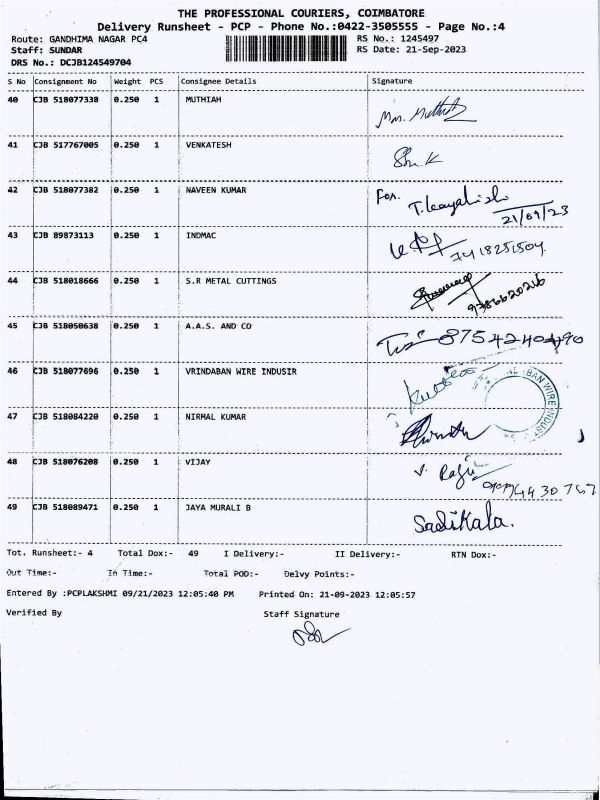 THE PROFESSIONAL COURIERS, COIMBATORE
Delivery Runsheet - PCP - Phone No.:0422-3505555 - Page No.:4
Route: GANDHIMA NAGAR PC4 RS No.: 1245497
Staff: SUNDAR RS Date: 21-Sep-2023
DRS No.: DCJB124549704
S No Consignment No Weight PCS Consignee Details Signature
40 CJB 518077338 0.250 1 MUTHIAH
41 CJB 517767005 0.250 1 VENKATESH
42 CJB 518077382 0.250 1 NAVEEN KUMAR For.
21/09/23
43 CJB 89873113 0.250 1 INDMAC
44 CJB 518018666 0.250 1 S.R METAL CUTTINGS
9786620216
45 CJB 518050638 0.250 1 A.A.S. AND CO
46 CJB 518077696 0.250 1 VRINDABAN WIRE INDUSIR
47 CJB 518084220 0.250 1 NIRMAL KUMAR
48 CJB 518076208 0.250 1 VIJAY
49 CJB 518089471 0.250 1 JAYA MURALI B Sadikala.
Tot. Runsheet:- 4 Total Dox:- 49 I Delivery:- II Delivery:- RTN Dox:-
Out Time:- In Time:- Total POD:- Delvy Points:-
Entered By :PCPLAKSHMI 09/21/2023 12:05:40 PM Printed On: 21-09-2023 12:05:57
Verified By Staff Signature